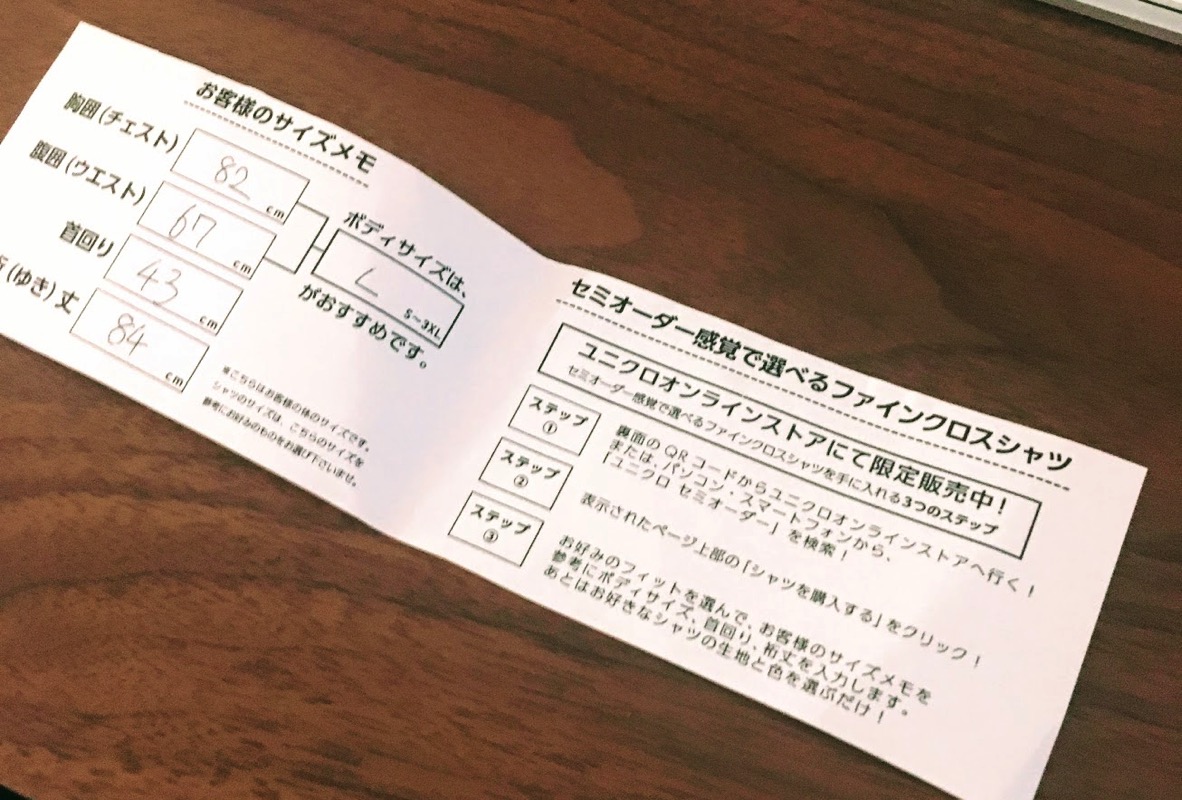 お客様のサイズメモ
胸囲(チェスト)
82
cm
腹囲(ウエスト)
67
cm
首回り
43
cm
(ゆき)丈
84
cm
ボディサイズは、
L
S〜3XL
がおすすめです。
※こちらはお客様の体のサイズです。
シャツのサイズは、こちらのサイズを
参考にお好みのものをお選び下さいませ。
セミオーダー感覚で選べるファインクロスシャツ
ユニクロオンラインストアにて限定販売中！
セミオーダー感覚で選べるファインクロスシャツを手に入れる3つのステップ
ステップ
①
裏面のQRコードからユニクロオンラインストアへ行く！
または、パソコン・スマートフォンから、
「ユニクロ セミオーダー」を検索！
ステップ
②
表示されたページ上部の「シャツを購入する」をクリック！
ステップ
③
お好みのフィットを選んで、お客様のサイズメモを
参考にボディサイズ、首回り、裄丈を入力します。
あとはお好きなシャツの生地と色を選ぶだけ！